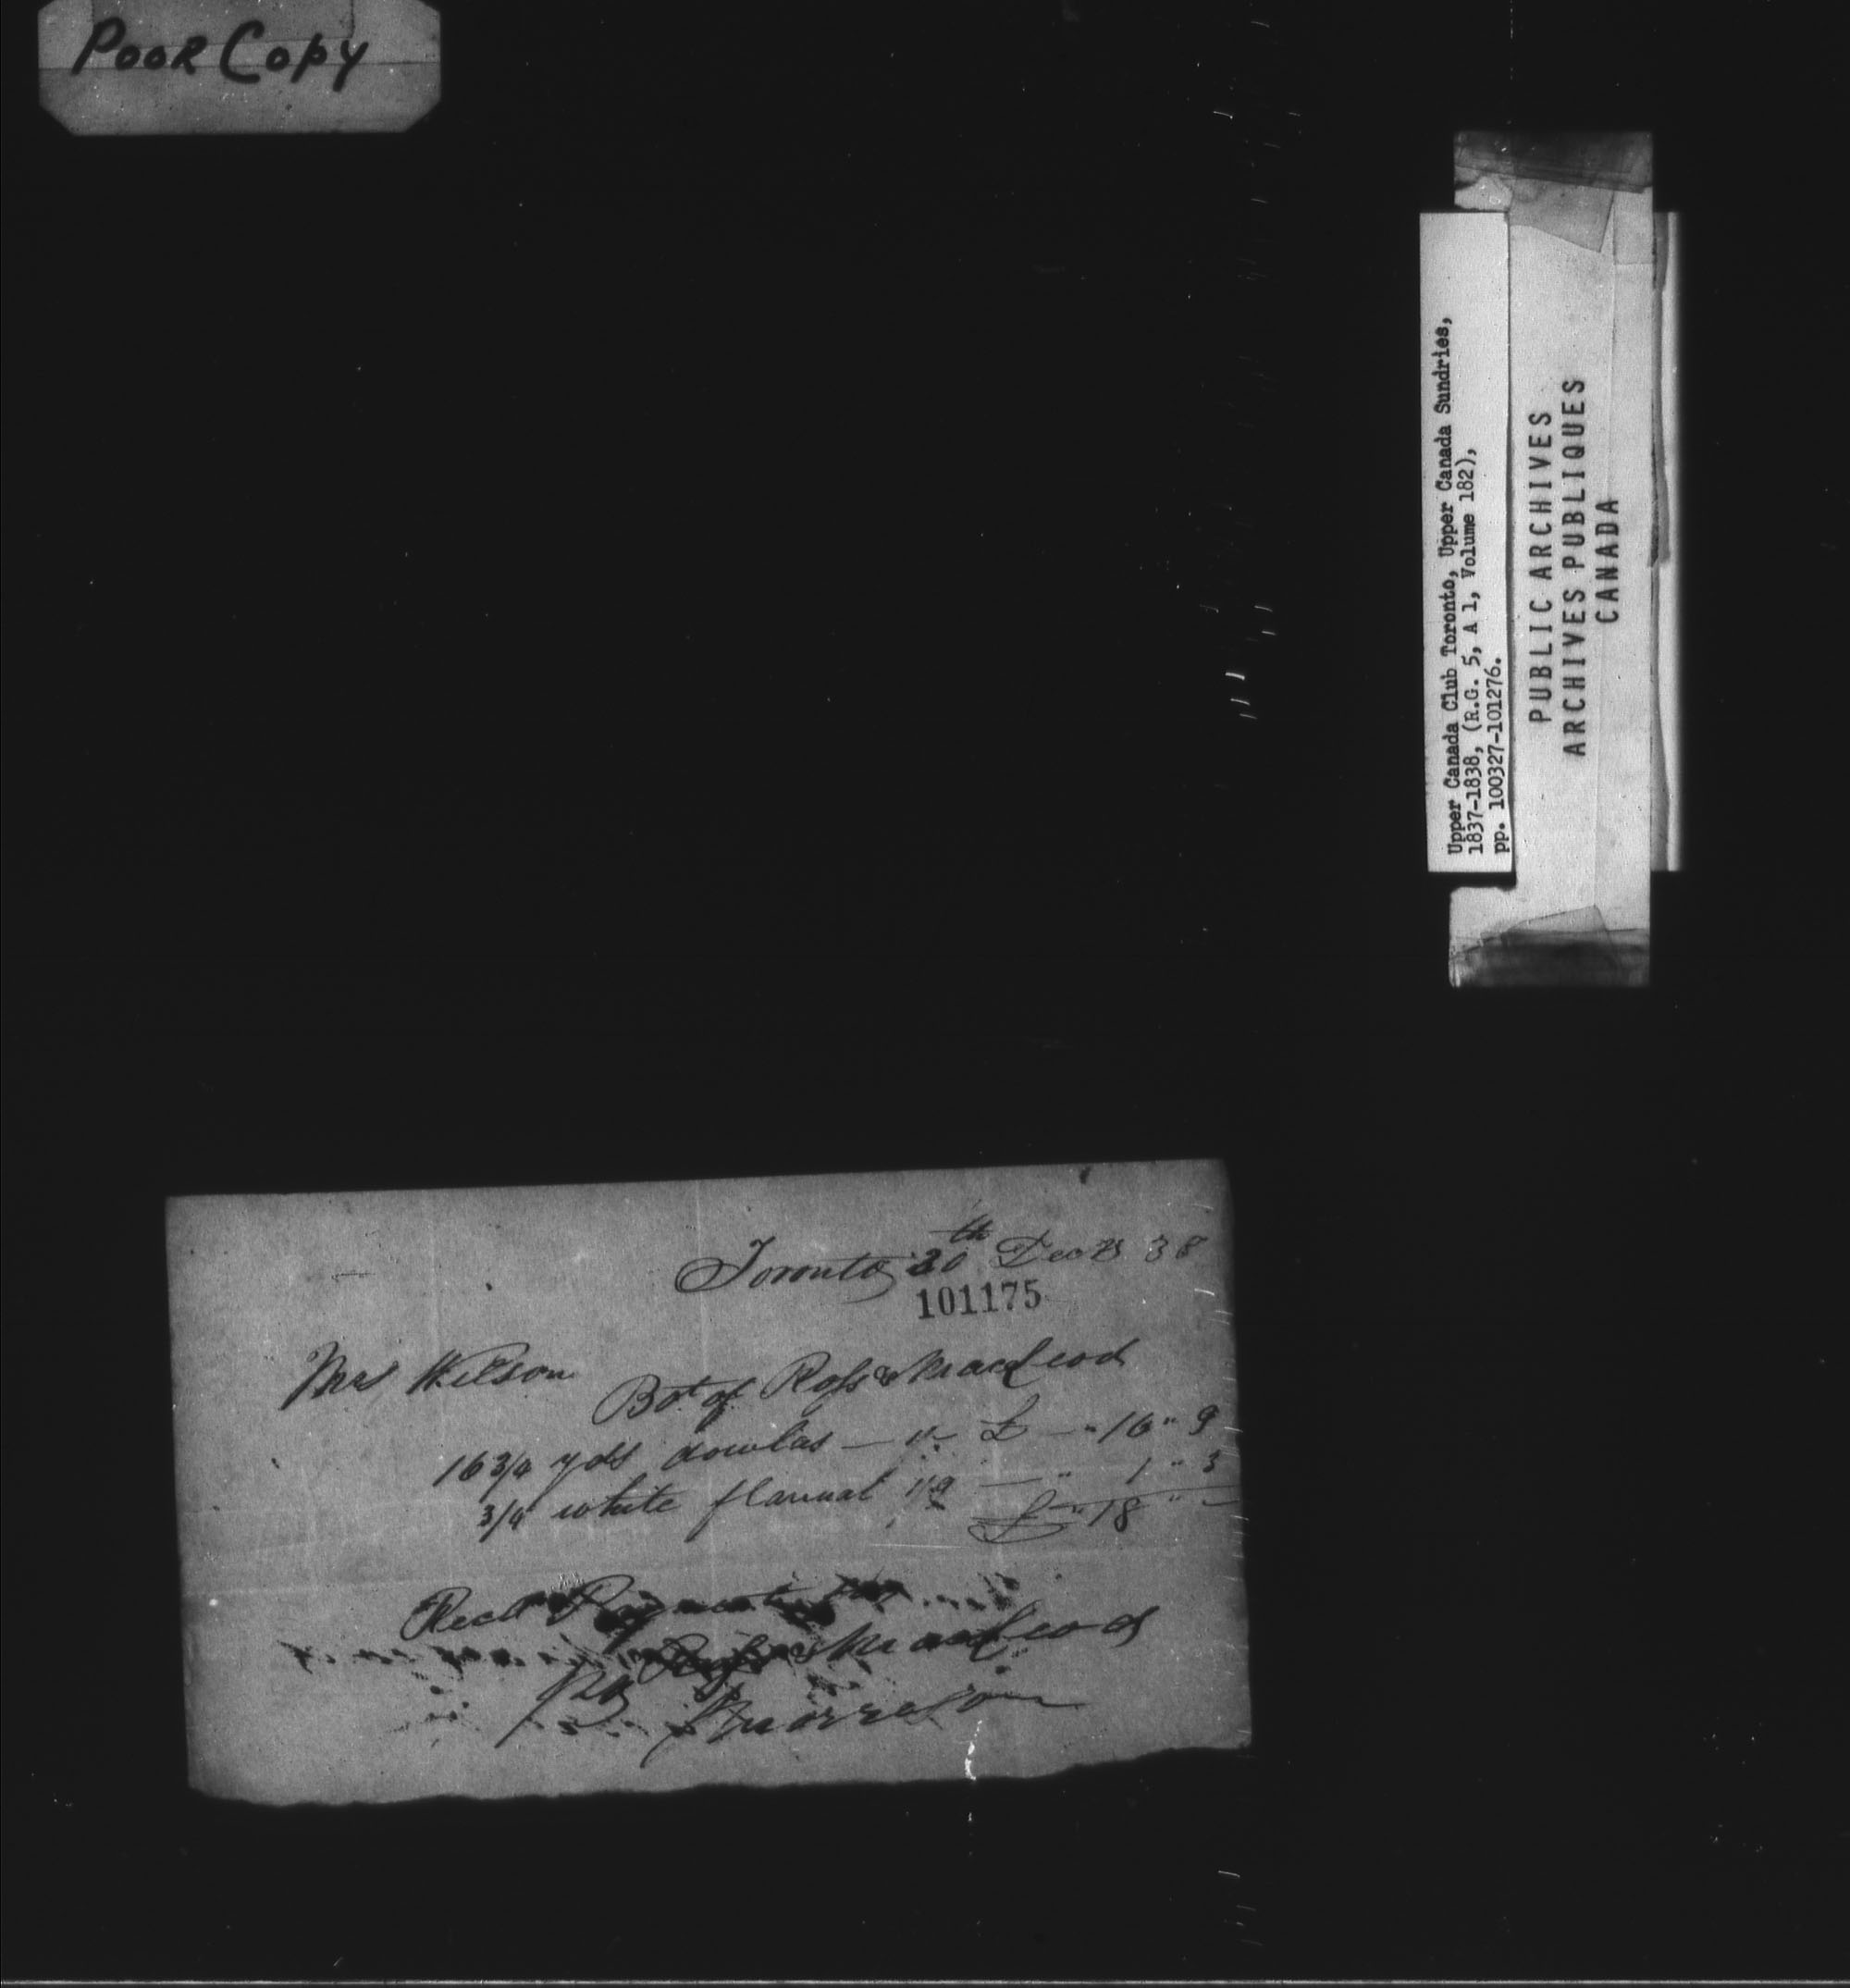 Poor Copy
Upper Canada Club Toronto, Upper Canada Sundries,
1837-1838, (R.G. 5, A 1, Volume 182),
pp. 100327-101276.
PUBLIC ARCHIVES
ARCHIVES PUBLIQUES
CANADA
Toronto 20th Decr 38
101175
Mrs Wilson
Bot of Ross & MacLeod
16 3/4 yds dowlas — 1/- £ — " 16 " 9
3/4 white flannal 1/9 — " 1 " 3
£ - " 18 " -
Recd Payment for
Ross & MacLeod
Morrison